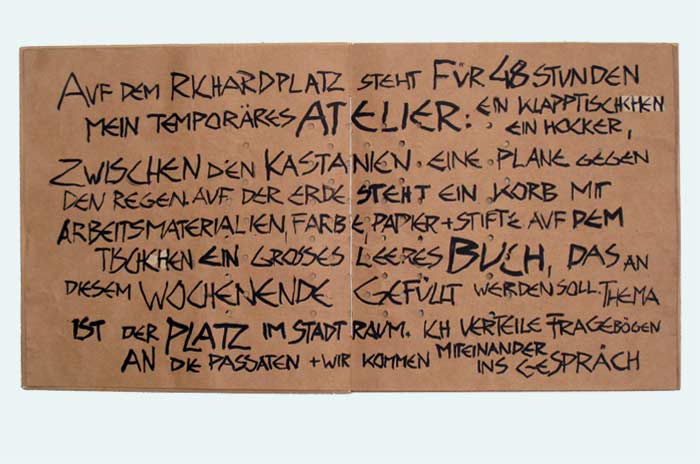 AUF DEM RICHARDPLATZ STEHT FÜR 48 STUNDEN
MEIN TEMPORÄRES ATELIER: EIN KLAPPTISCHCHEN
EIN HOCKER,
ZWISCHEN DEN KASTANIEN. EINE PLANE GEGEN
DEN REGEN. AUF DER ERDE STEHT EIN KORB MIT
ARBEITSMATERIALIEN, FARBE, PAPIER + STIFTE AUF DEM
TISCHCHEN EIN GROSSES LEERES BUCH, DAS AN
DIESEM WOCHENENDE GEFÜLLT WERDEN SOLL. THEMA
IST DER PLATZ IM STADTRAUM. ICH VERTEILE FRAGEBÖGEN
AN DIE PASSATEN + WIR KOMMEN MITEINANDER
INS GESPRÄCH